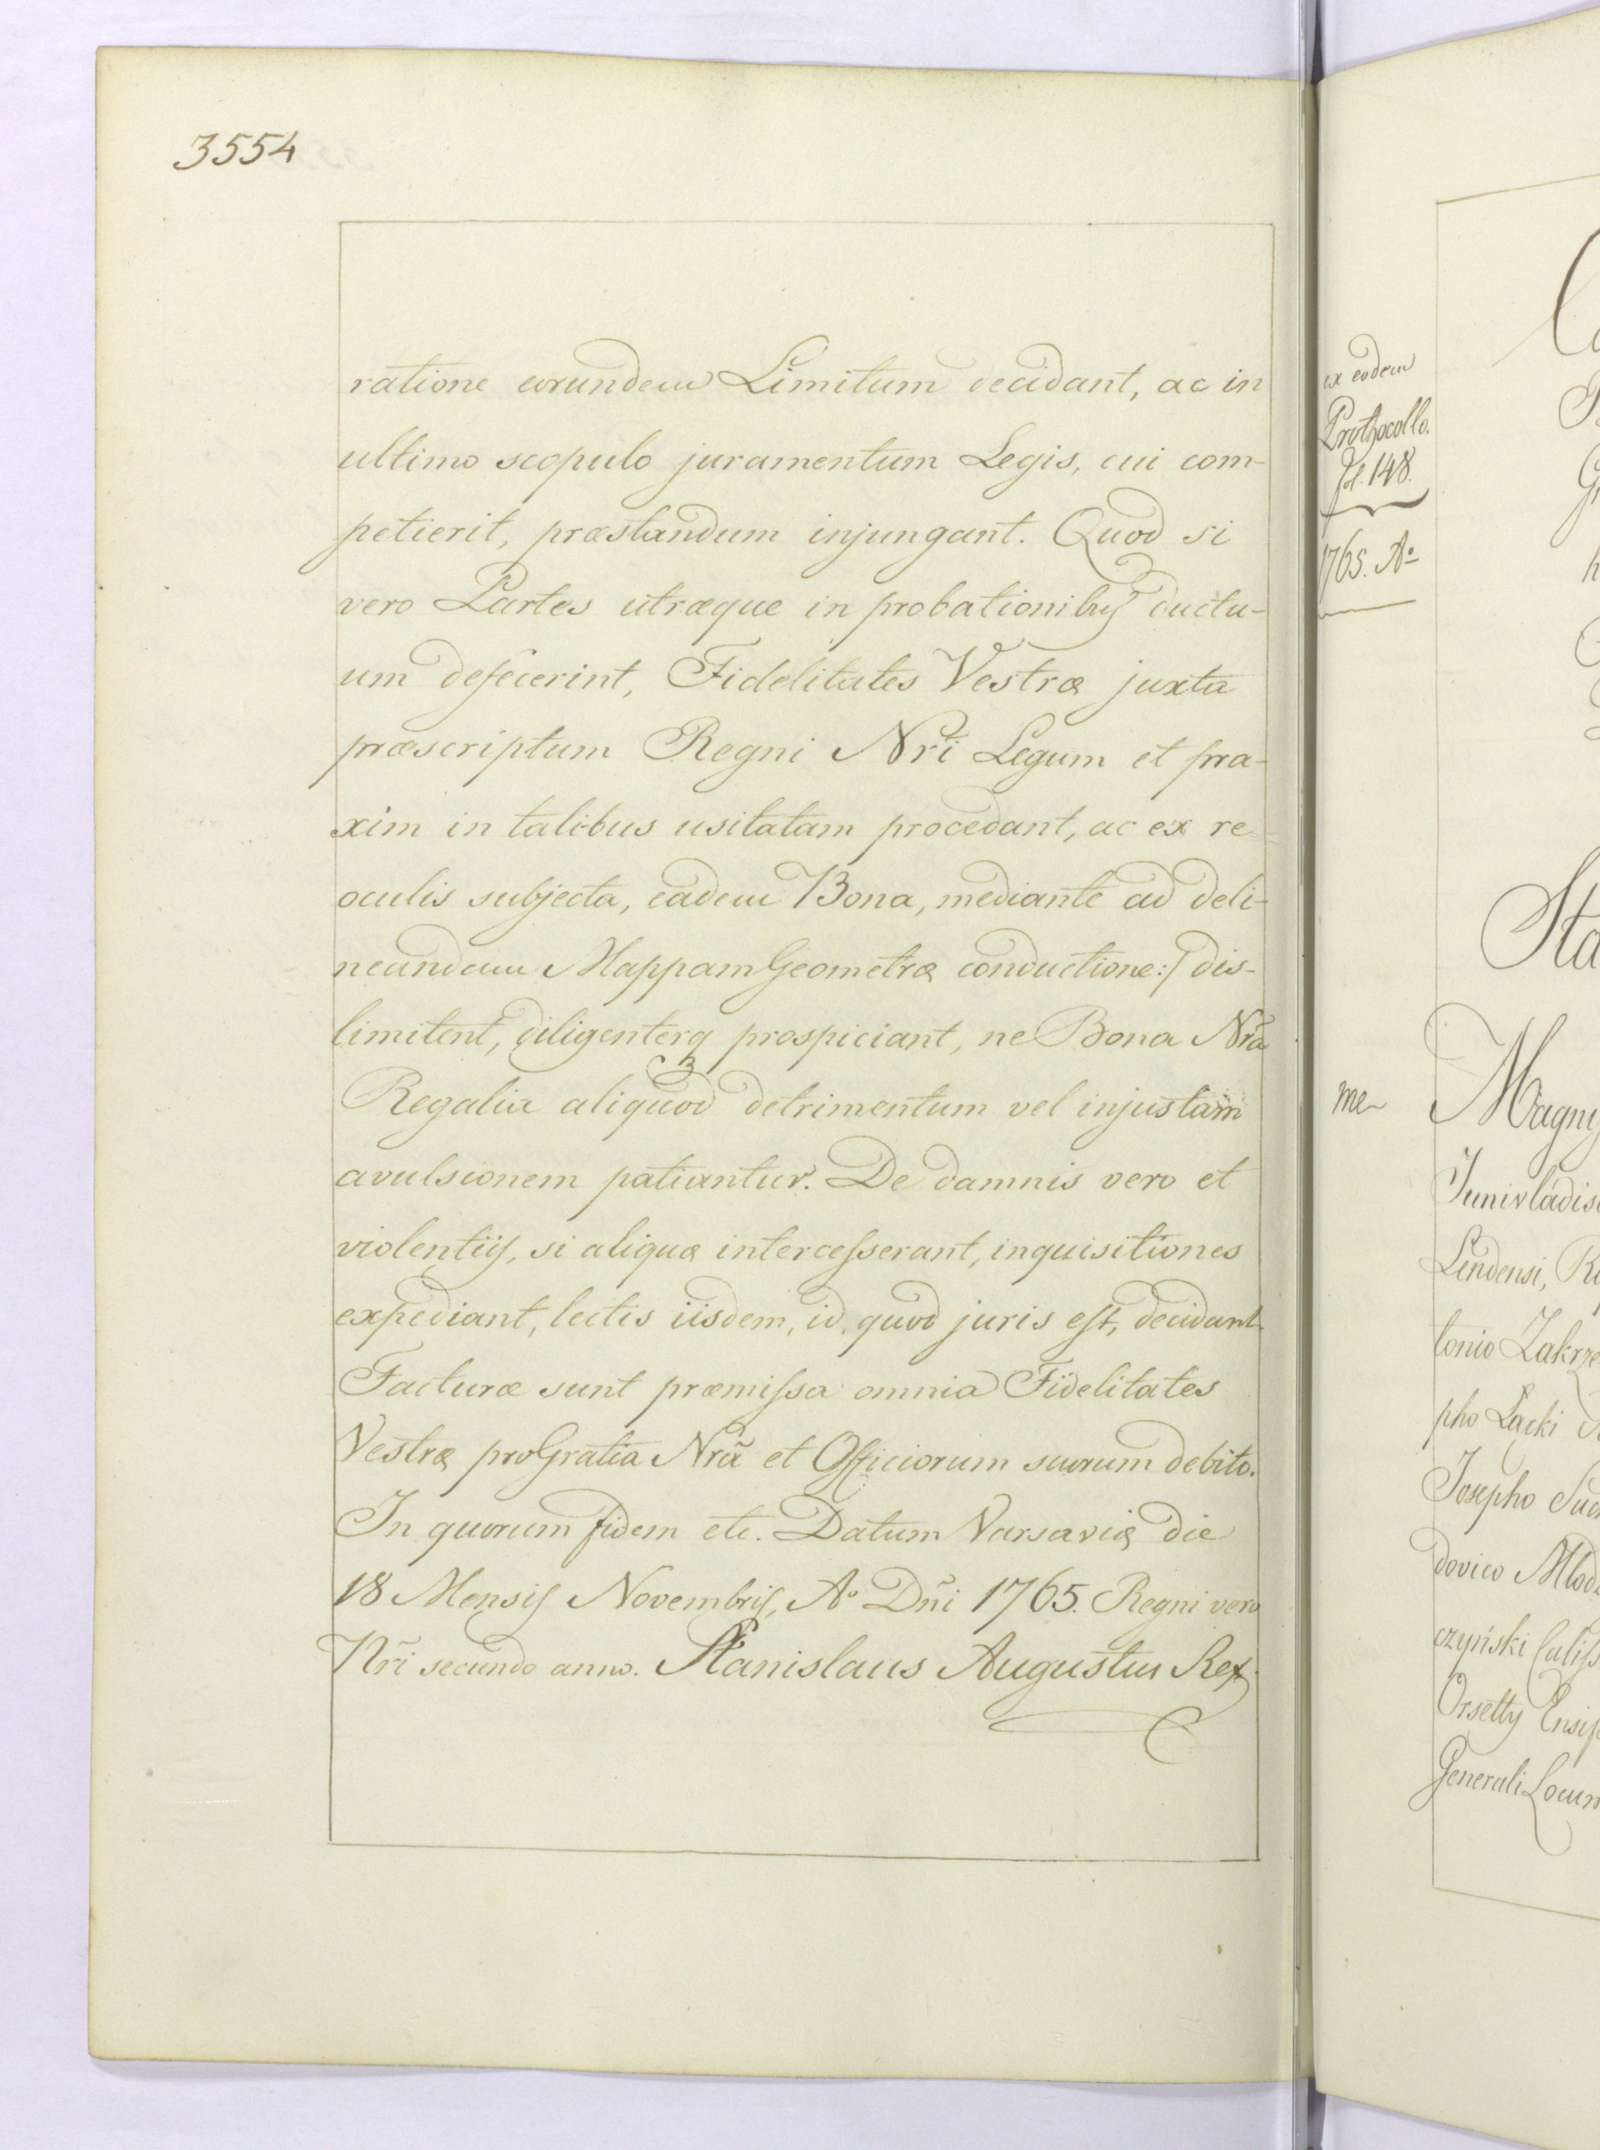 3554
ratione eorundem Limitum decidant, ac in
ultimo scopulo juramentum Legis, cui com-
petierit, præstandum injungant. Quod si
vero Partes utræque in probationibus ductu-
um defecerint, Fidelitates Vestræ juxta
præscriptum Regni Nri Legum et pra-
xim in talibus usitatam procedant, ac ex re
oculis subjecta, eadem Bona, mediante ad deli-
neandam Mappam Geometræ conductione :/ dis-
limitent, diligenterq prospiciant, ne Bona Nra
Regalia aliquod detrimentum vel injustam
avulsionem patiantur. De damnis vero et
violentiis, si aliquæ intercesserant, inquisitiones
expediant, lectis iisdem, id, quod juris est, decidant.
Facturæ sunt præmissa omnia Fidelitates
Vestræ pro Gratia Nrã et Officiorum suorum debito.
In quorum fidem etc. Datum Varsaviæ die
18 Mensis Novembris, Aº Dñi 1765. Regni vero
Nñri secundo anno. Stanislaus Augustus Rex.
ex eodem
Prothocollo.
fol. 148.
1765. Aº
Sta
me
Magni
Junivladis
Lendensi, R
tonio Zakrze
pho Łącki
Josepho Suc
dovico Młodz
czyński Caliss
Orsetty Ensif
Generali Locum